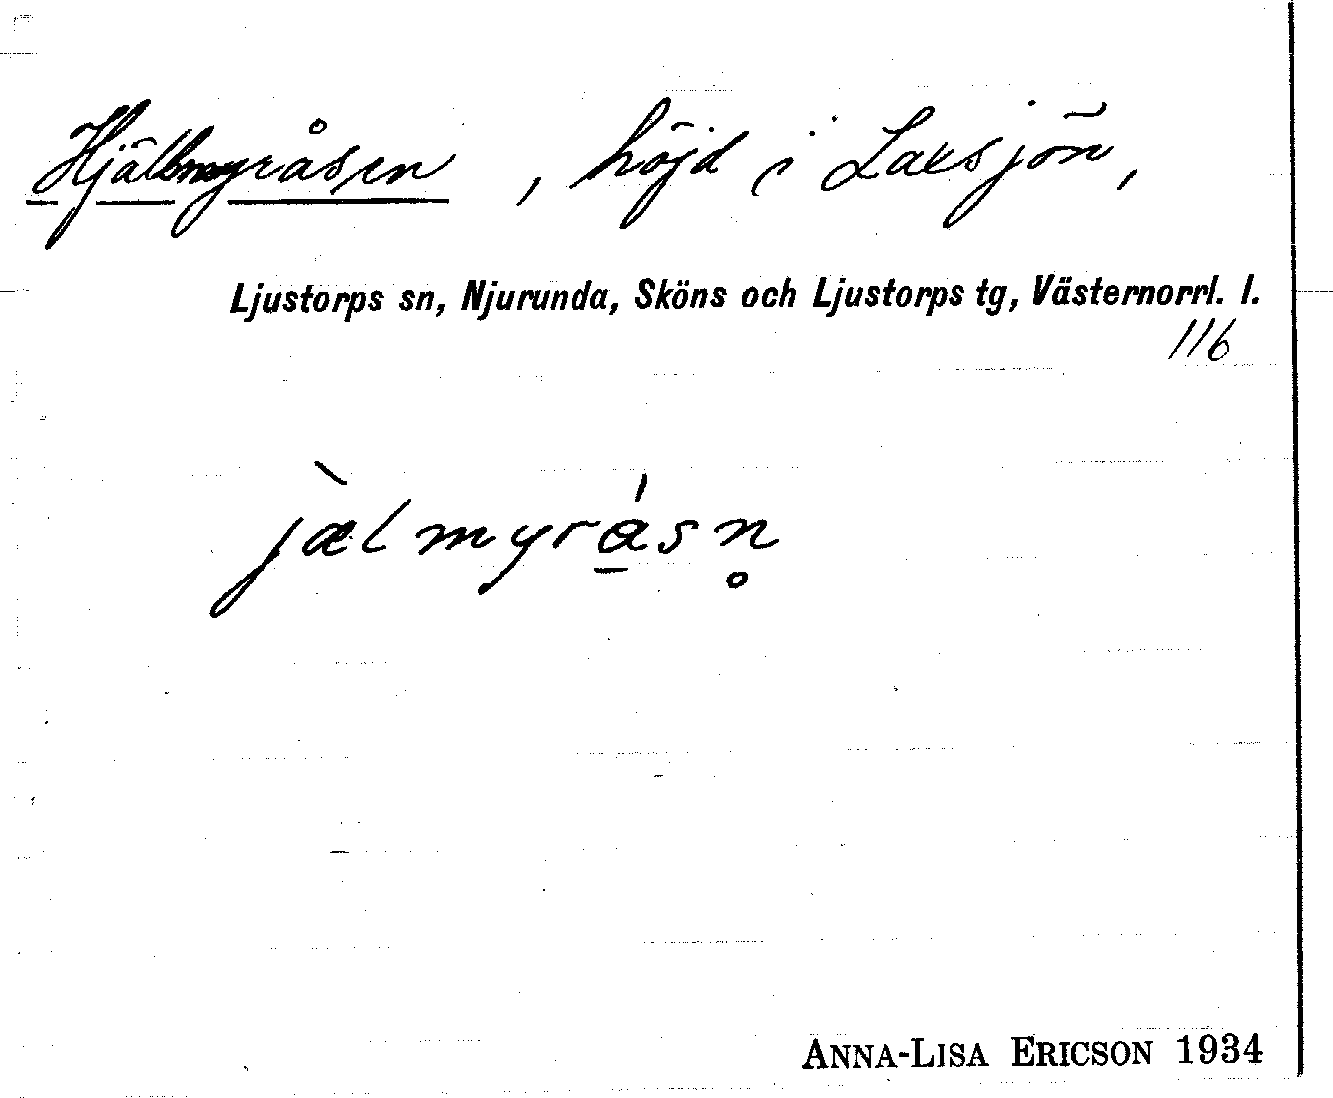 Hjälmyråsen, höjd i Laxsjön,
Ljustorps sn, Njurunda, Sköns och Ljustorps tg, Västernorrl. l.
116
jæ̀lmyrá̱sn̥
ANNA-LISA ERICSON 1934